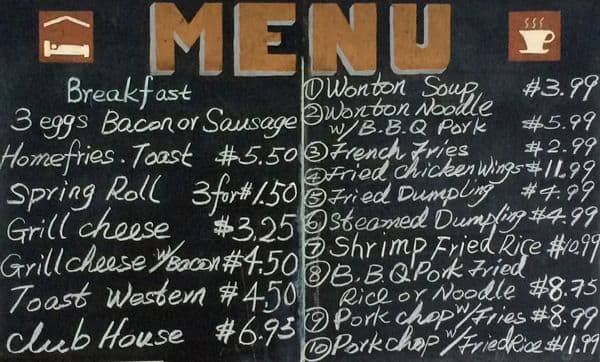 MENU
Breakfast
3 eggs Bacon or Sausage
Homefries. Toast $5.50
Spring Roll 3 for $1.50
Grill cheese $3.25
Grill cheese w/Bacon $4.50
Toast Western $4.50
Club House $6.95
① Wonton Soup $3.99
② Wonton Noodle
w/ B.B.Q Pork $5.99
③ French Fries $2.99
④ Fried chicken wings $11.99
⑤ Fried Dumpling $4.99
⑥ Steamed Dumpling $4.99
⑦ Shrimp Fried Rice $10.99
⑧ B.B.Q Pork Fried
Rice or Noodle $8.75
⑨ Pork chop w/ Fries $8.99
⑩ Pork chop w/ Fried Rice $11.99